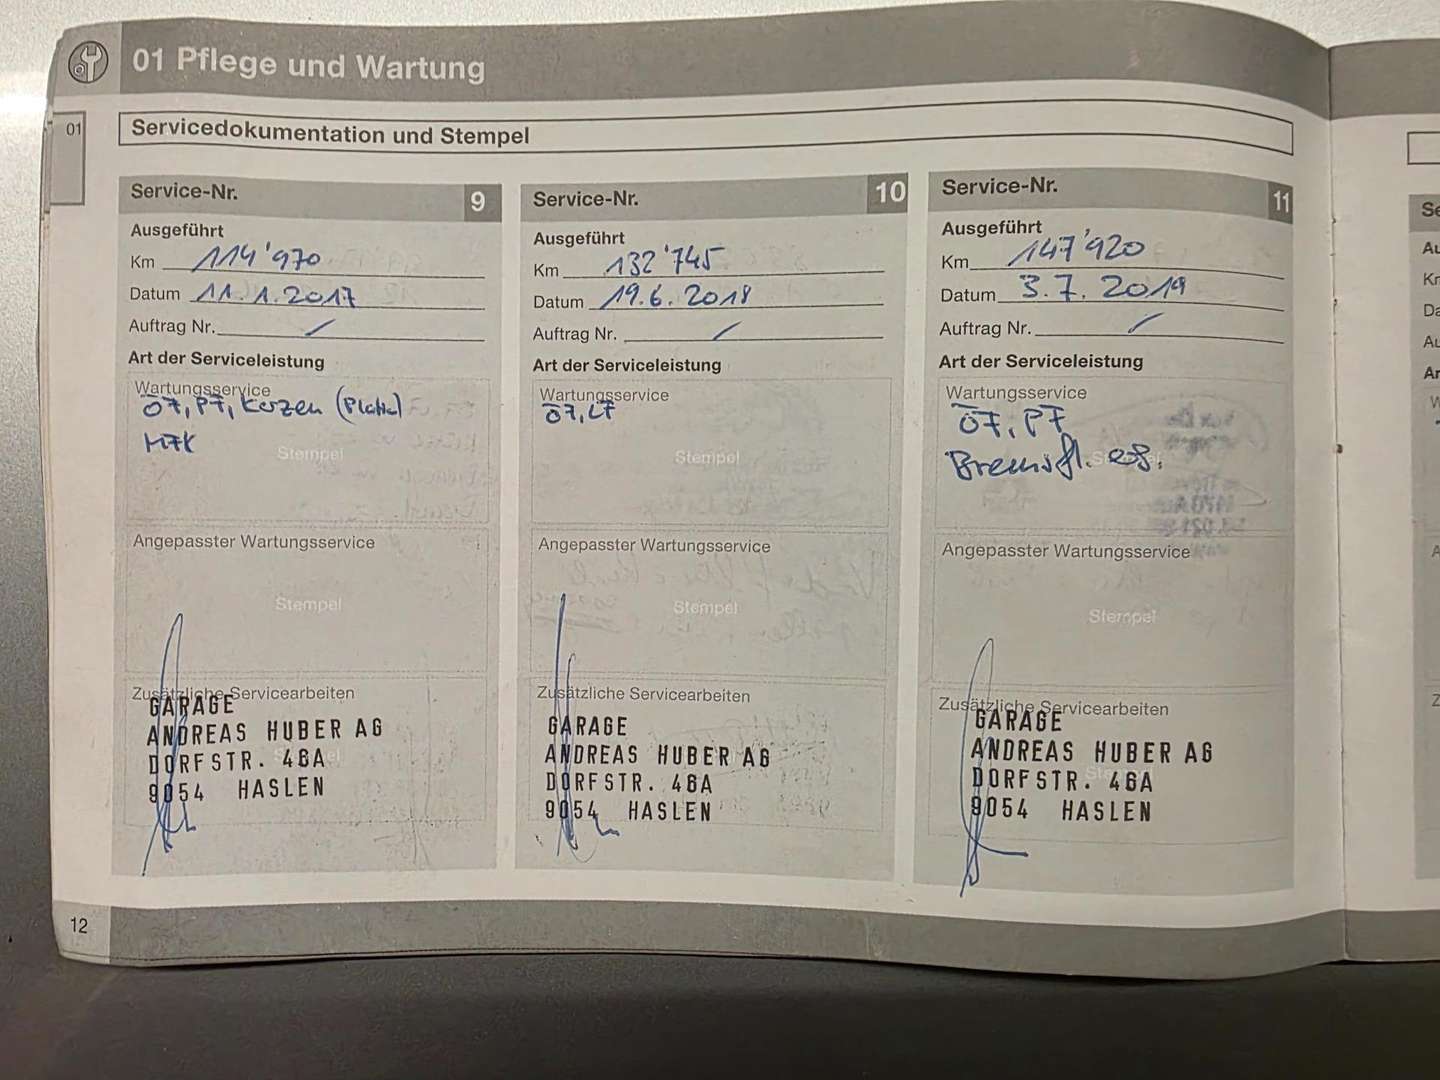 01 Pflege und Wartung
01
Servicedokumentation und Stempel
Service-Nr. 9
Ausgeführt
Km 114'970
Datum 11.1.2017
Auftrag Nr. /
Art der Serviceleistung
Wartungsservice
ÖF, PF, Kerzen (Platin)
MFK
Stempel
Angepasster Wartungsservice
Stempel
Zusätzliche Servicearbeiten
GARAGE
ANDREAS HUBER AG
DORFSTR. 46A
9054 HASLEN
Service-Nr. 10
Ausgeführt
Km 132'745
Datum 19.6.2018
Auftrag Nr. /
Art der Serviceleistung
Wartungsservice
ÖF, LF
Stempel
Angepasster Wartungsservice
Stempel
Zusätzliche Servicearbeiten
GARAGE
ANDREAS HUBER AG
DORFSTR. 46A
9054 HASLEN
Service-Nr. 11
Ausgeführt
Km 147'920
Datum 3.7.2019
Auftrag Nr. /
Art der Serviceleistung
Wartungsservice
ÖF, PF
Bremsfl. ers.
Stempel
Angepasster Wartungsservice
Stempel
Zusätzliche Servicearbeiten
GARAGE
ANDREAS HUBER AG
DORFSTR. 46A
9054 HASLEN
12